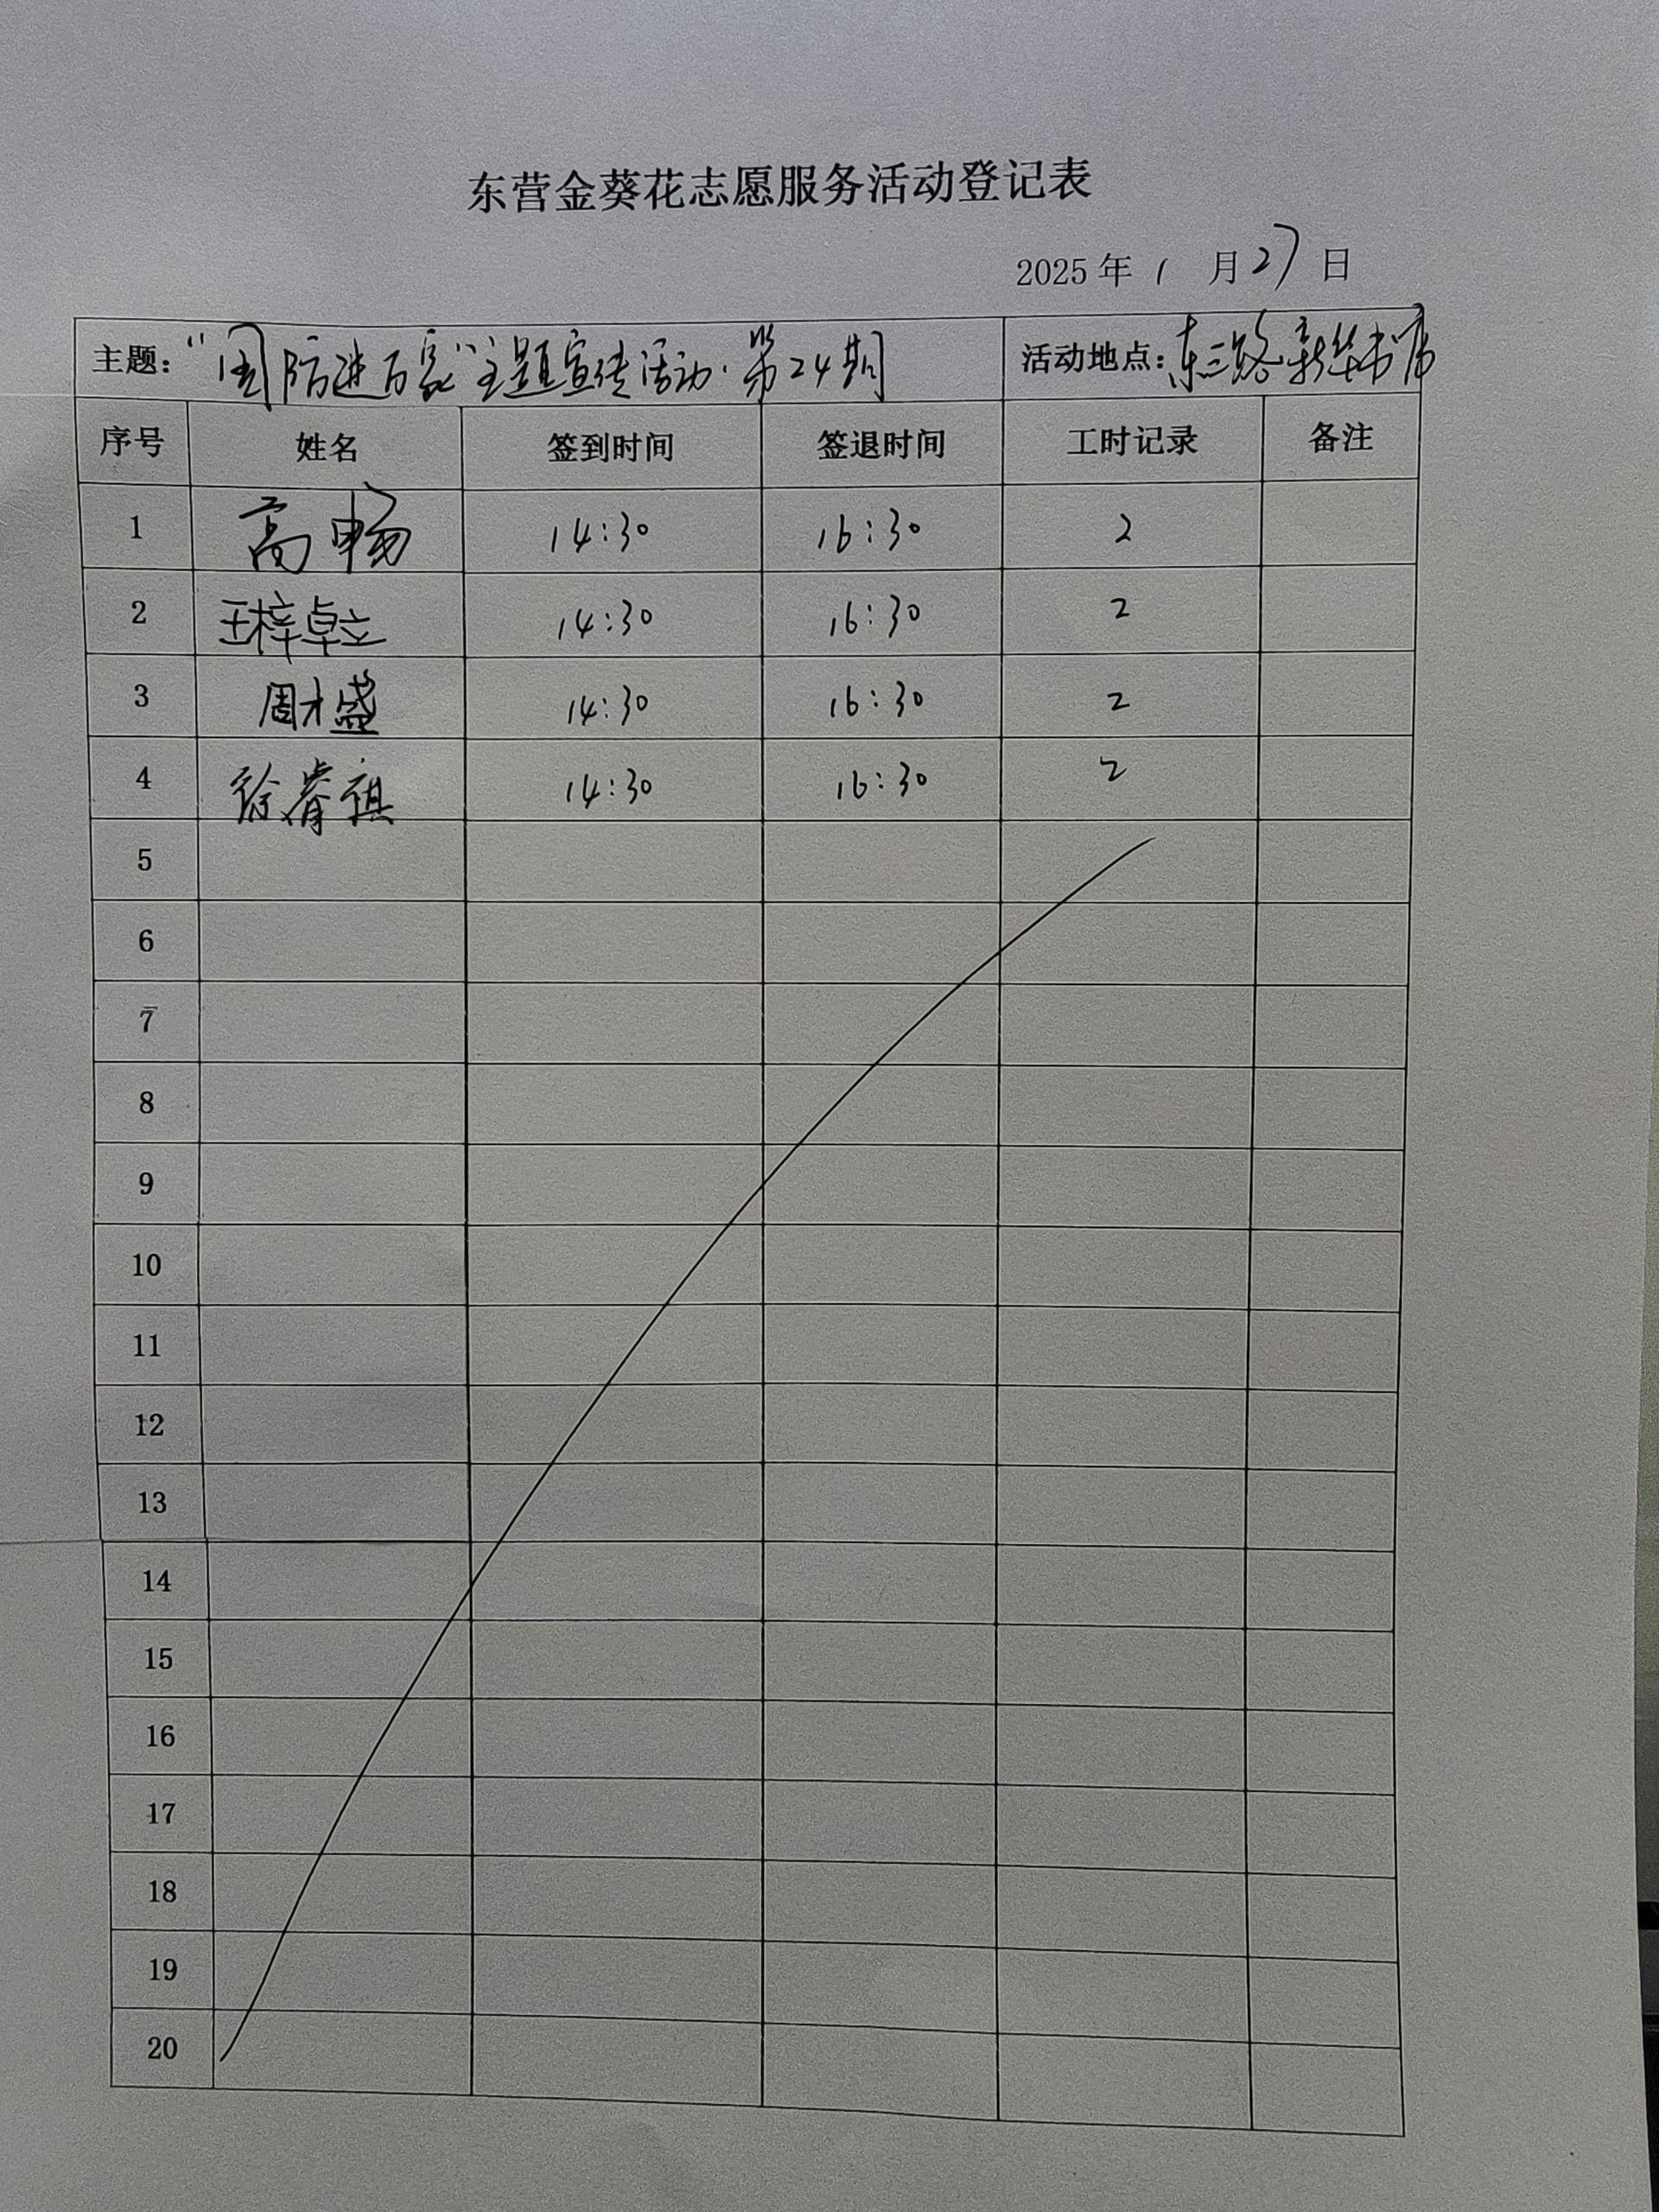 东营金葵花志愿服务活动登记表
2025 年 1 月 27 日
主题：“国防进百家”主题宣传活动·第24期 活动地点：东三路新华书店
序号 姓名 签到时间 签退时间 工时记录 备注
1 高畅 14:30 16:30 2
2 王梓卓立 14:30 16:30 2
3 周才盛 14:30 16:30 2
4 徐睿祺 14:30 16:30 2
5
6
7
8
9
10
11
12
13
14
15
16
17
18
19
20